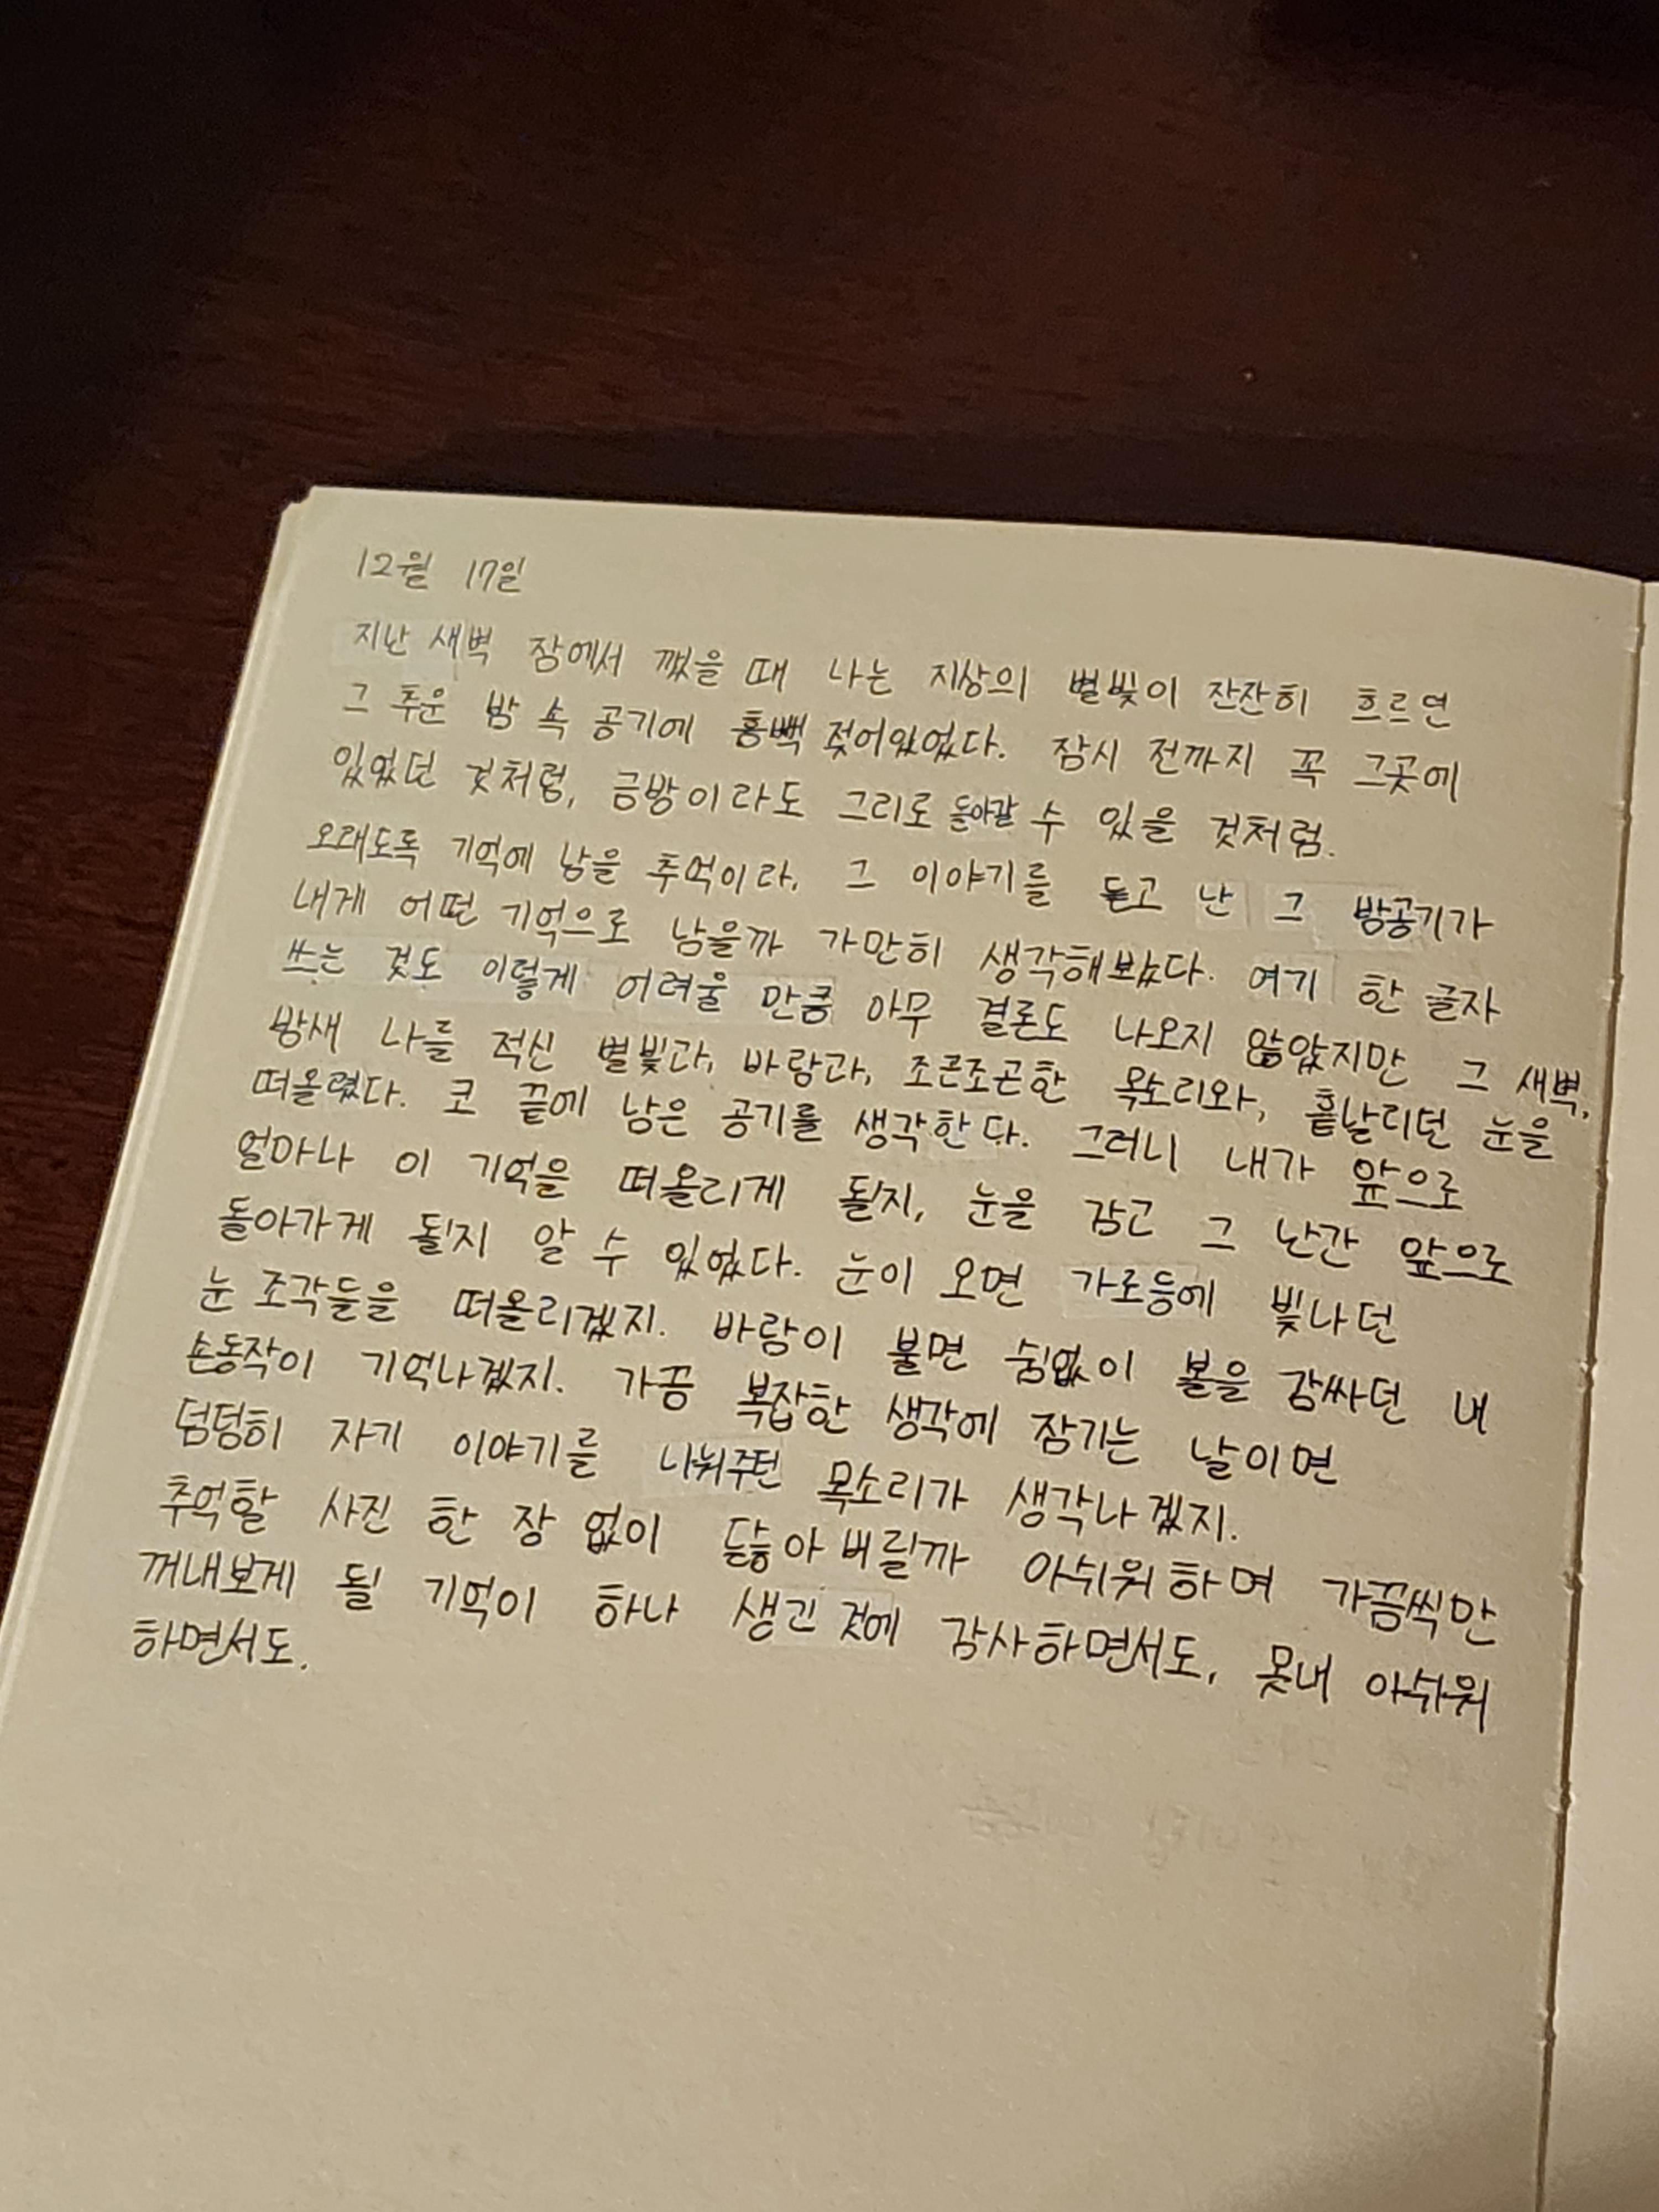 12월 17일
지난 새벽 잠에서 깼을 때 나는 지상의 별빛이 잔잔히 흐르던
그 추운 밤 속 공기에 흠뻑 젖어있었다. 잠시 전까지 꼭 그곳에
있었던 것처럼, 금방이라도 그리로 돌아갈 수 있을 것처럼.
오래도록 기억에 남을 추억이라, 그 이야기를 듣고 난 그 밤공기가
내게 어떤 기억으로 남을까 가만히 생각해봤다. 여기 한 글자
쓰는 것도 이렇게 어려울 만큼 아무 결론도 나오지 않았지만 그 새벽,
밤새 나를 적신 별빛과, 바람과, 조곤조곤한 목소리와, 흩날리던 눈을
떠올렸다. 코 끝에 남은 공기를 생각한다. 그러니 내가 앞으로
얼마나 이 기억을 떠올리게 될지, 눈을 감고 그 난간 앞으로
돌아가게 될지 알 수 있었다. 눈이 오면 가로등에 빛나던
눈 조각들을 떠올리겠지. 바람이 불면 쉼없이 볼을 감싸던 내
손동작이 기억나겠지. 가끔 복잡한 생각에 잠기는 날이면
덤덤히 자기 이야기를 나눠주던 목소리가 생각나겠지.
추억할 사진 한 장 없이 닳아버릴까 아쉬워하며 가끔씩만
꺼내보게 될 기억이 하나 생긴 것에 감사하면서도, 못내 아쉬워
하면서도.